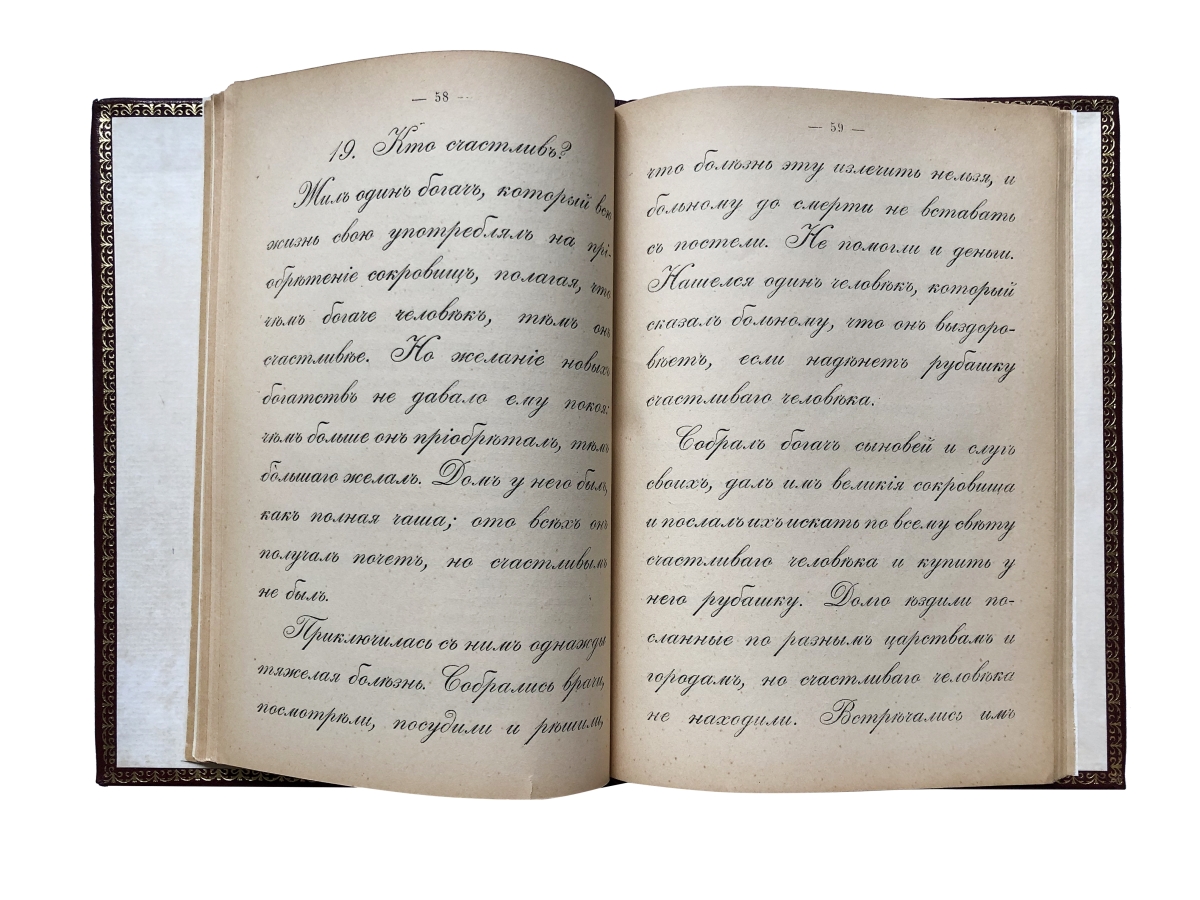 — 58 —
19. Кто счастливъ?
Жилъ одинъ богачъ, который всю
жизнь свою употреблялъ на прі-
обрѣтеніе сокровищъ, полагая, что
чѣмъ богаче человѣкъ, тѣмъ онъ
счастливѣе. Но желаніе новыхъ
богатствъ не давало ему покоя:
чѣмъ больше онъ пріобрѣталъ, тѣмъ
бо́льшаго желалъ. Домъ у него былъ,
какъ полная чаша; ото всѣхъ онъ
получалъ почетъ, но счастливымъ
не былъ.
Приключилась съ нимъ однажды
тяжелая болѣзнь. Собрались врачи,
посмотрѣли, посудили и рѣшили,
— 59 —
что болѣзнь эту излечить нельзя, и
больному до смерти не вставать
съ постели. Не помогли и деньги.
Нашелся одинъ человѣкъ, который
сказалъ больному, что онъ выздоро-
вѣетъ, если надѣнетъ рубашку
счастливаго человѣка.
Собралъ богачъ сыновей и слугъ
своихъ, далъ имъ великія сокровища
и послалъ ихъ искать по всему свѣту
счастливаго человѣка и купить у
него рубашку. Долго ѣздили по-
сланные по разнымъ царствамъ и
городамъ, но счастливаго человѣка
не находили. Встрѣчались имъ